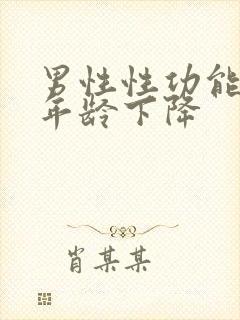 男性性功能
年龄下降
肖某某